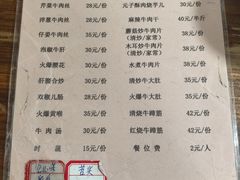 芹菜牛肉丝 28元/份 元子酥肉烧芋儿 30元/份
洋葱牛肉丝 28元/份 麻辣牛肉干 40元/半斤
仔姜牛肉丝 35元/份 蘑菇炒牛肉片 30元/份
(清炒/家常)
泡椒牛肝 28元/份 木耳炒牛肉片 30元/份
(清炒/家常)
火爆腰花 28元/份 水煮牛肉片 38元/份
肝腰合炒 30元/份 清炒牛大肚 35元/份
双椒儿肠 28元/份 火爆牛大肚 35元/份
火爆黄喉 35元/份 清烧牛蹄筋 42元/份
牛肉汤 30元/份 红烧牛蹄筋 42元/份
时蔬 15元/份 餐位费 2元/人